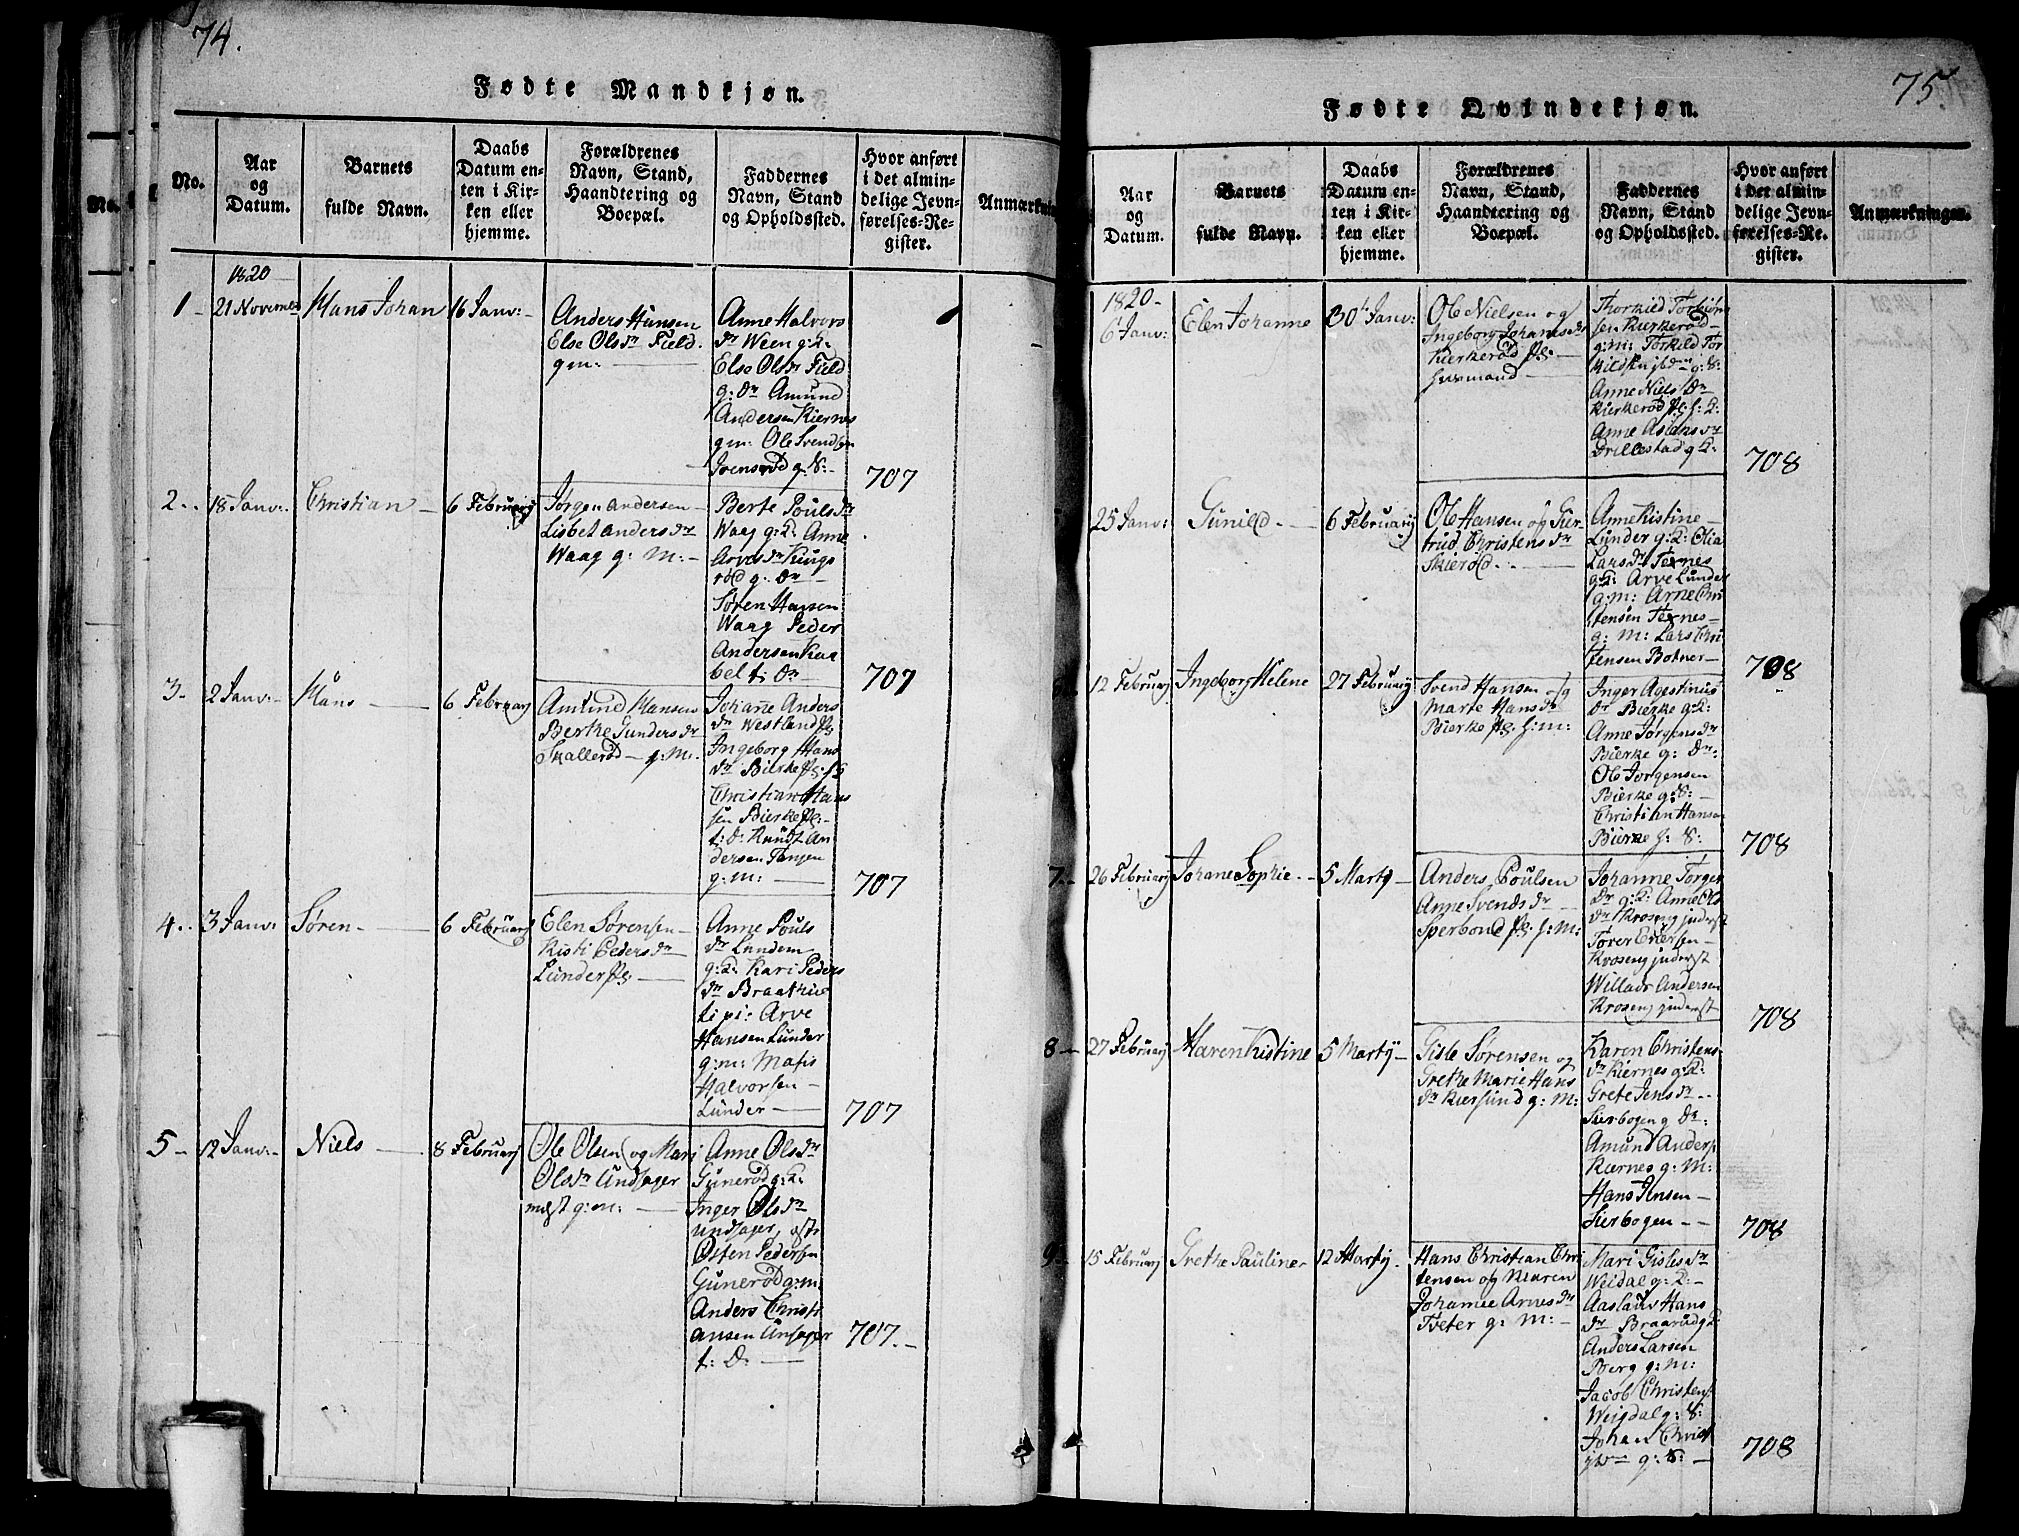 74.
Fødte Mandkjøn.
No.
Aar
og
Datum.
Barnets
fulde Navn.
Daabs
Datum en-
ten i Kir-
ken eller
hjemme.
Forældrenes
Navn, Stand,
Haandtering og
Boepæl.
Faddernes
Navn, Stand
og Opholdssted.
Hvor anført
i det almin-
delige Jevn-
førelses-Re-
gister.
Anmærknin
1820
1
21 Novemb
Hans Johan
16 Janv:
Anders Hansen
Else Ols dr Field
gm:
Anne Halvors
dr Ween g: 2:
Else Ols dr Field
g: dr Amund
Andersen Kiernes
gm: Ole Svendsen
Ivensrød g. S:
707
2
18 Janv:
Christian
6 February
Jørgen Andersen
Lisbet Anders dr
Waag g: M:
Berte Pouls dr
Waag g: 2: Anne
Arves dr Kings
rød g: dr
Søren Hansen
Waag Peder
Andersen Kaa
bel t: dr
707
3
2 Janv:
Hans
6 February
Amund Hansen
Berthe Gunders dr
Skallerød g: M:
Johane Anders
dr Westland Pl
Ingeborg Hans
dr Bierke Pl:
Christian Hans
sen Bierke Pl:
t: d: Knudt An
dersen Tangen
g: m:
707
4
3 Janv:
Søren
6 February
Elen Sørensen
Kisti Peders dr
Lunder Pl:
Anne Pouls
dr Lundem
g: 2: Kari Peders
dr Braathe
t: pi: Arve
Hansen Lunder
g: m: Mathis
Halvorsen
Lunder
707
5
12 Janv:
Niels
8 February
Ole Olsen og Mari
Ols dr Undsager
g: m:
Anne Ols dr
Gunerød g: 2:
Inger Ols dr
Undsager,
Osten Pedersen
Gunerød g: m
Anders Christi
ansen Unsager
t: D:
707.
75
Fødte Qvindekjøn.
Aar
og
Datum.
Barnets
fulde Navn.
Daabs
Datum en-
ten i Kir-
ken eller
hjemme.
Forældrenes
Navn, Stand,
Haandtering og
Boepæl.
Faddernes
Navn, Stand
og Opholdssted.
Hvor anført
i det almin-
delige Jevn-
førelses-Re-
gister.
Anmærkninger.
1820
6 Janv:
Elen Johanne
30 Janv:
Ole Nielsen og
Ingeborg Johanes dr
Kierkerød Pl:
Huusmand
Thorkild Torbiørn
sen Kierkerød
g: m: Torkild Tor
kildsen g: S:
Anne Niels dr
Kierkerød Pl: f: 2:
Anne Aslaks dr
Drillestad g 2:
708
25 Janv:
Gunild
6 February
Ole Hansen og Gier
trud Christens dr
Skierød
Anne Kistine
Lunder g: 2: Olia
Lars dr Ternes
g 2: Arve Lunder
g: m: Arne Chri
stensen Ternes
g: m: Lars Chri
stensen Botner
708
12 February
Ingeborg Helene
27 February
Svend Hansen og
Marte Hans dr
Bierke Pl: f: m:
Inger Agestinus
dr Bierke g: 2:
Anne Jørgens dr
Bierke g: dr:
Ole Jorgensen
Bierke g: S:
Christian Hansen
Bierke f: S:
708
7
26 February
Johane Sophie
5 Marty
Anders Poulsen
Anne Svends dr
Sperbond Pl: f: M:
Johanne Torger
dr g: 2: Anne Ols
dr Kroseng inderst
Torer Eriksen
Kroseng inderst
Willads Andersen
Kroseng inderst
708
8
27 February
Haren Kistine
5 Marty
Gisle Sørensen og
Grethe Marie Hans
dr Kiersund g: M:
Karen Christens
dr Kiernes g: 2:
Grete Jens dr
Sierbogen g dr:
Amund Anders
Kiernes g: M:
Hans Jensen
Sierbogen
708
9
15 February
Grethe Pauline
12 Marty
Hans Christian Chri
stensen og Maren
Johanne Arnes dr
Tveter g: M:
Mari Gisles dr
Weidal g: 2:
Aaslaug Hans
dr Braarød g 2
Anders Larsen
Berg g: M:
Jacob Christens
Weigdal g: S:
Johan Christ
g: S:
708